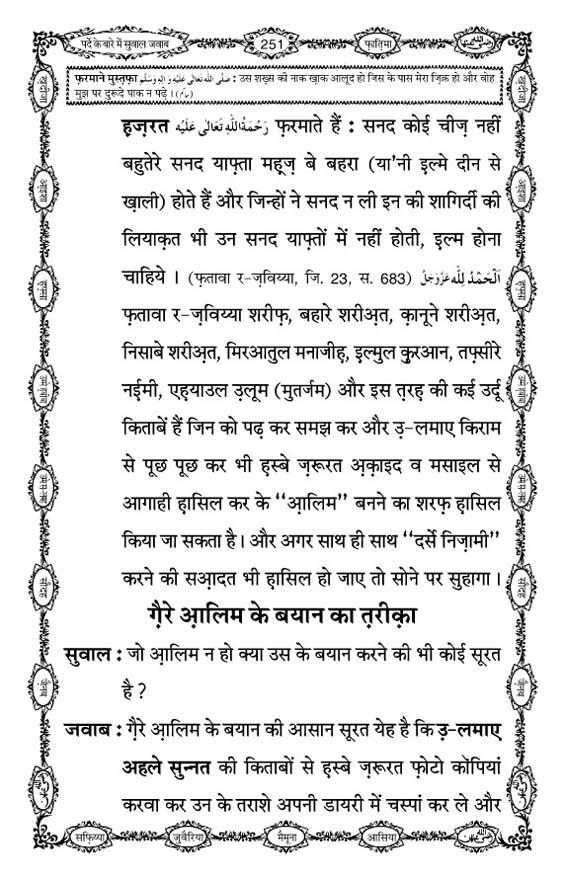 पर्दे के बारे में सुवाल जवाब
251
फ़ातिमा
फ़रमाने मुस्तफ़ा صَلَّى اللهُ تَعَالٰى عَلَيْهِ وَاٰلِهٖ وَسَلَّم : उस शख़्स की नाक ख़ाक आलूद हो जिस के पास मेरा ज़िक्र हो और वोह
मुझ पर दुरूदे पाक न पढ़े । (حاكم)
हज़रत رَحْمَةُ اللهِ تَعَالٰى عَلَيْه फ़रमाते हैं : सनद कोई चीज़ नहीं
बहुतेरे सनद याफ्ता महूज़ बे बहरा (या'नी इल्मे दीन से
ख़ाली) होते हैं और जिन्हों ने सनद न ली इन की शागिर्दी की
लियाक़त भी उन सनद याफ़्तों में नहीं होती, इल्म होना
चाहिये । (फ़तावा र-ज़विय्या, जि. 23, स. 683) اَلْحَمْدُ لِلّٰه عَزَّوَجَلَّ
फ़तावा र-ज़विय्या शरीफ़, बहारे शरीअ़त, क़ानूने शरीअ़त,
निसाबे शरीअ़त, मिरआतुल मनाजीह़, इल्मुल कुरआन, तफ्सीरे
नईमी, एह़याउल उ़लूम (मुतर्जम) और इस त़रह़ की कई उर्दू
किताबें हैं जिन को पढ़ कर समझ कर और उ़-लमाए किराम
से पूछ पूछ कर भी हस्बे ज़रूरत अ़क़ाइद व मसाइल से
आगाही ह़ासिल कर के ‘‘आ़लिम’’ बनने का शरफ़ ह़ासिल
किया जा सकता है। और अगर साथ ही साथ ‘‘दर्से निज़ामी’’
करने की सआ़दत भी ह़ासिल हो जाए तो सोने पर सुहागा ।
ग़ैरे आ़लिम के बयान का त़रीक़ा
सुवाल : जो आ़लिम न हो क्या उस के बयान करने की भी कोई सूरत
है ?
जवाब : ग़ैरे आ़लिम के बयान की आसान सूरत येह है कि उ़-लमाए
अहले सुन्नत की किताबों से ह़स्बे ज़रूरत फ़ोटो कॉपियां
करवा कर उन के तराशे अपनी डायरी में चस्पां कर ले और
सफ़िय्या
जुवैरिया
मैमूना
आसिया